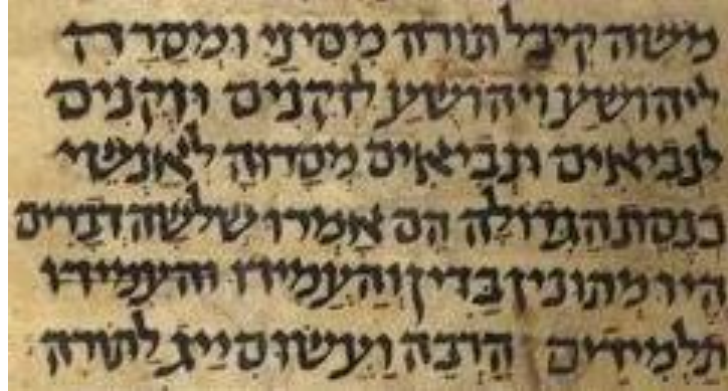 משה קיבל תורה מסיני ומסרה
ליהושע ויהושע לזקנים וזקנים
לנביאים ונביאים מסרוה לאנשי
כנסת הגדולה הם אמרו שלשה דברים
היו מתונין בדין והעמידו והעמידו
תלמידים הרבה ועשום ייג לתורה